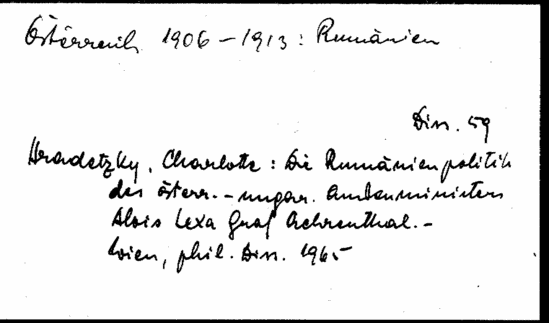 Österreich 1906 – 1913 : Rumänien
Diss. 59
Hradetzky, Charlotte : Die Rumänienpolitik
des österr. – ungar. Aussenministers
Alois Lexa Graf Aehrenthal. –
Wien, phil. Diss. 1965